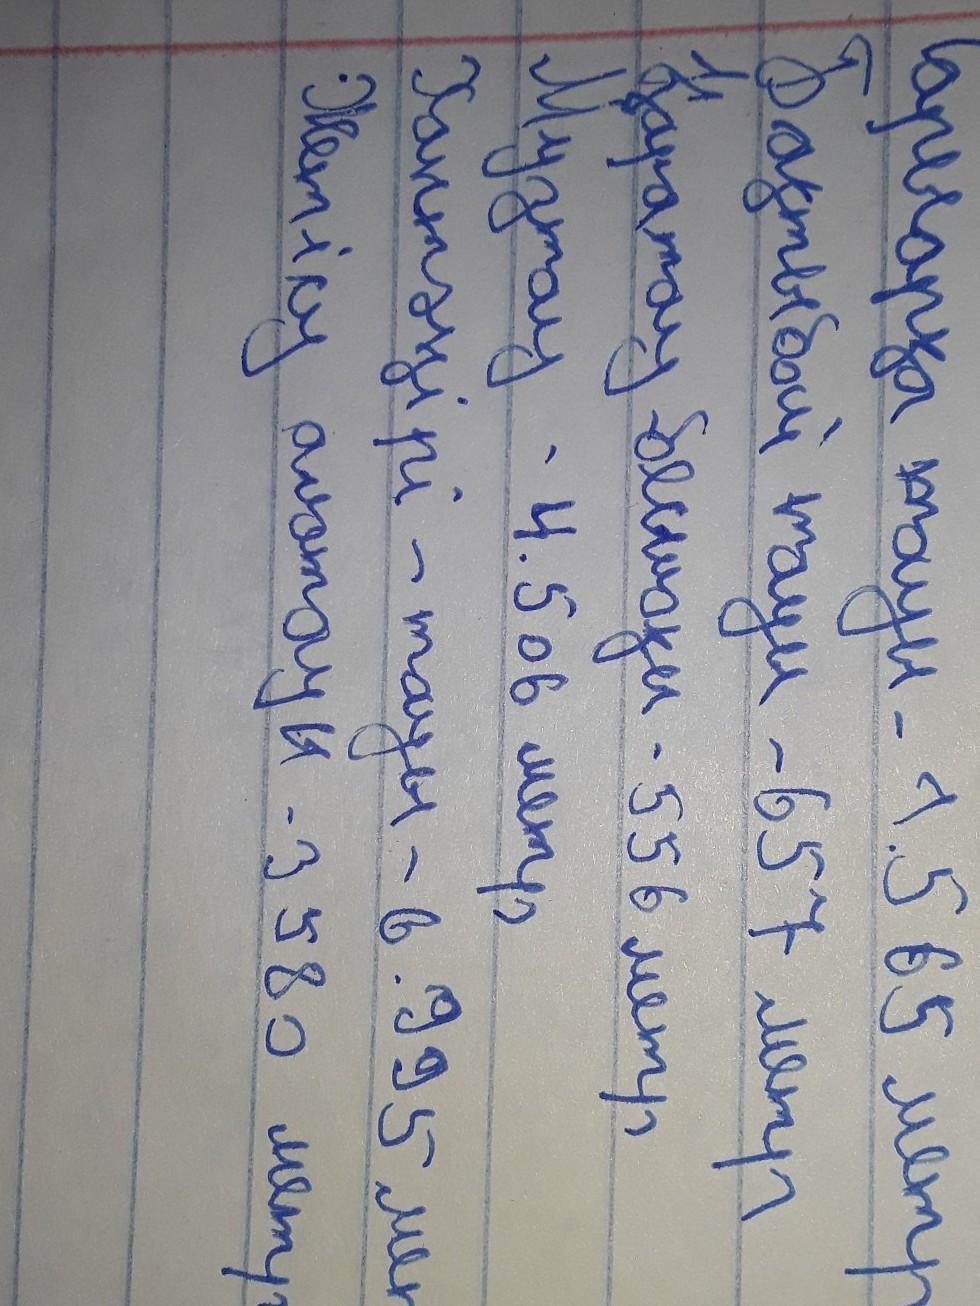 Сарыарқа тауы - 1.565 метр
Бақтыбай тауы - 657 метр
Қаратау басшақы - 556 метр
Мұзтау - 4.506 метр
Хантәңірі - тауы - 6.995 мет
Жетісу алатауы - 3580 метр